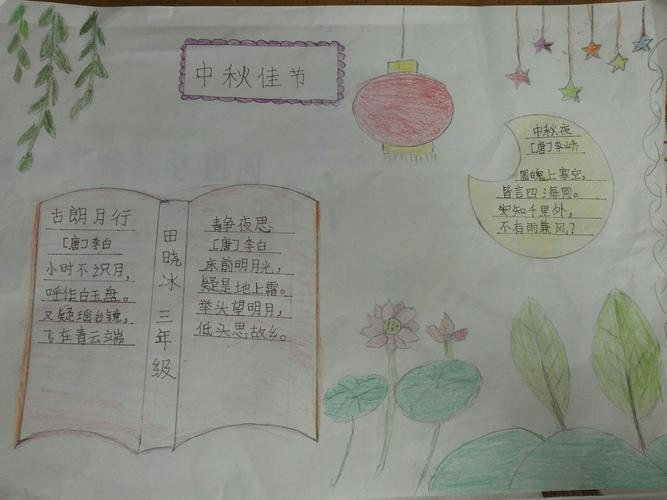 中秋佳节
中秋夜
[唐]李峤
圆魄上寒空,
皆言四海同。
安知千里外,
不有雨兼风?
古朗月行
[唐]李白
小时不识月,
呼作白玉盘。
又疑瑶台镜,
飞在青云端
田晓冰 三年级
静夜思
[唐]李白
床前明月光,
疑是地上霜。
举头望明月,
低头思故乡。